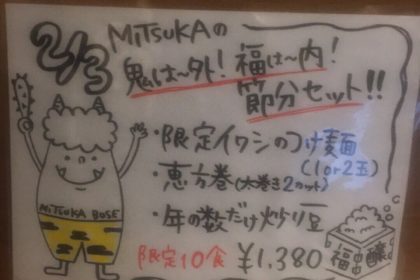 2/3 MiTSUKAの
鬼は〜外！福は〜内！
節分セット!!
・限定イワシのつけ麺
(1or2玉)
・恵方巻(太巻き2カット)
・年の数だけ炒り豆
限定10食 ¥1,380
MiTSUKA BOSE
福 醸